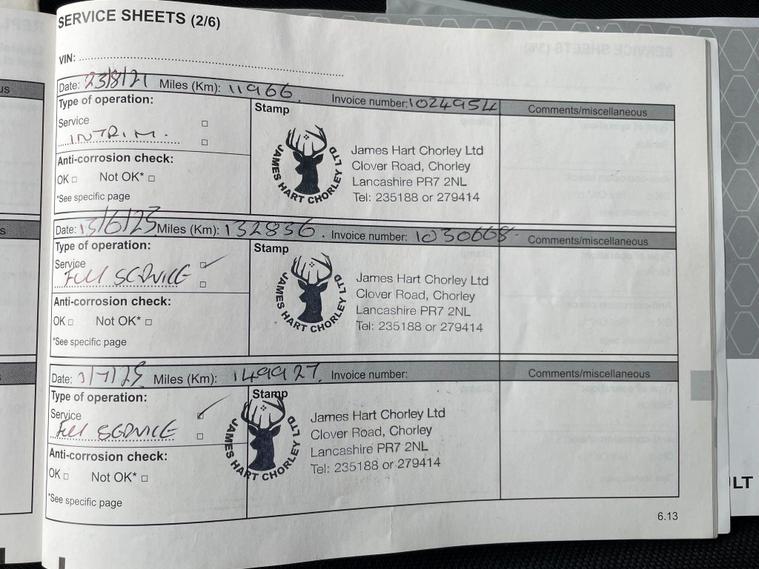 SERVICE SHEETS (2/6)
VIN:
Date: 23/8/21 Miles (Km): 11966. Invoice number: 1024954 Comments/miscellaneous
Type of operation:
Service
INTRIM.
Anti-corrosion check:
OK Not OK*
*See specific page
Stamp
JAMES HART CHORLEY LTD
James Hart Chorley Ltd
Clover Road, Chorley
Lancashire PR7 2NL
Tel: 235188 or 279414
Date: 13/6/23 Miles (Km): 132836. Invoice number: 1030668 Comments/miscellaneous
Type of operation:
Service
FULL SERVICE
Anti-corrosion check:
OK Not OK*
*See specific page
Stamp
JAMES HART CHORLEY LTD
James Hart Chorley Ltd
Clover Road, Chorley
Lancashire PR7 2NL
Tel: 235188 or 279414
Date: Miles (Km): 149927. Invoice number: Comments/miscellaneous
Type of operation:
Service
FULL SERVICE
Anti-corrosion check:
OK Not OK*
*See specific page
Stamp
JAMES HART CHORLEY LTD
James Hart Chorley Ltd
Clover Road, Chorley
Lancashire PR7 2NL
Tel: 235188 or 279414
6.13